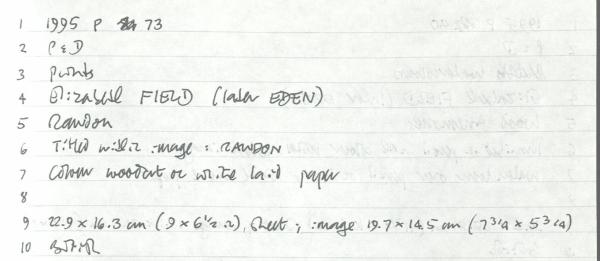 1 1995 P 73
2 P & D
3 Prints
4 Elizabeth FIELD (later EDEN)
5 Rawdon
6 Titled within image : RAWDON
7 Colour woodcut on white laid paper
8
9 22.9 x 16.3 cm (9 x 6 1/2 in), sheet ; image 19.7 x 14.5 cm (7 3/4 x 5 3/4)
10